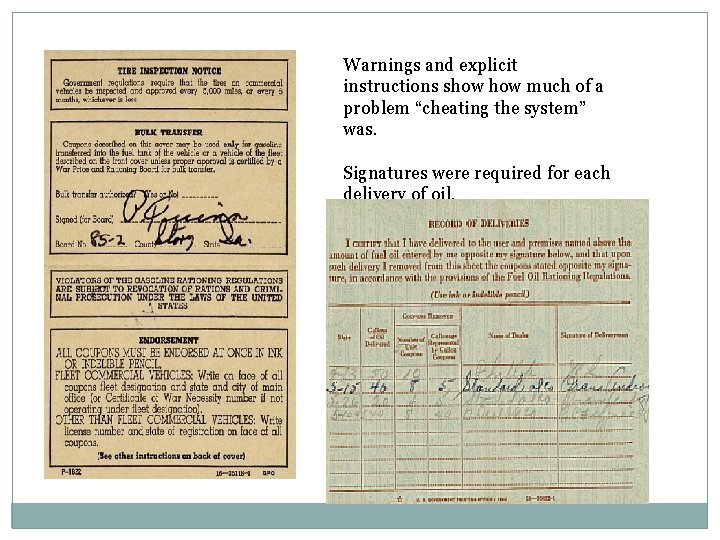 Warnings and explicit
instructions show how much of a
problem “cheating the system”
was.
Signatures were required for each
delivery of oil.
TIRE INSPECTION NOTICE
Government regulations require that the tires on commercial
vehicles be inspected and approved every 5,000 miles, or every 6
months, whichever is less.
BULK TRANSFER
Coupons described on this cover may be used only for gasoline
transferred into the fuel tank of the vehicle or a vehicle of the fleet
described on the front cover unless proper approval is certified by a
War Price and Rationing Board for bulk transfer.
Bulk transfer authorized? (Yes or No)
Signed (for Board)
Board No. 85-2 County Story State Ia.
VIOLATORS OF THE GASOLINE RATIONING REGULATIONS
ARE SUBJECT TO REVOCATION OF RATIONS AND CRIMI-
NAL PROSECUTION UNDER THE LAWS OF THE UNITED
STATES
ENDORSEMENT
ALL COUPONS MUST BE ENDORSED AT ONCE IN INK
OR INDELIBLE PENCIL.
FLEET COMMERCIAL VEHICLES: Write on face of all
coupons fleet designation and state and city of main
office (or Certificate of War Necessity number if not
operating under fleet designation).
OTHER THAN FLEET COMMERCIAL VEHICLES: Write
license number and state of registration on face of all
coupons.
(See other instructions on back of cover)
P-4622 16—35118-1 GPO
RECORD OF DELIVERIES
I CERTIFY that I have delivered to the user and premises named above the
amount of fuel oil entered by me opposite my signature below, and that upon
such delivery I removed from this sheet the coupons stated opposite my signa-
ture, in accordance with the provisions of the Fuel Oil Rationing Regulations.
(Use ink or indelible pencil)
COUPONS REMOVED
Date Gallons of Oil Delivered Number of Unit Coupons Gallonage Represented by Gallon Coupons Name of Dealer Signature of Deliveryman
5-13 50 10
5-15 40 8 5 Standard
40 8 40
U. S. GOVERNMENT PRINTING OFFICE